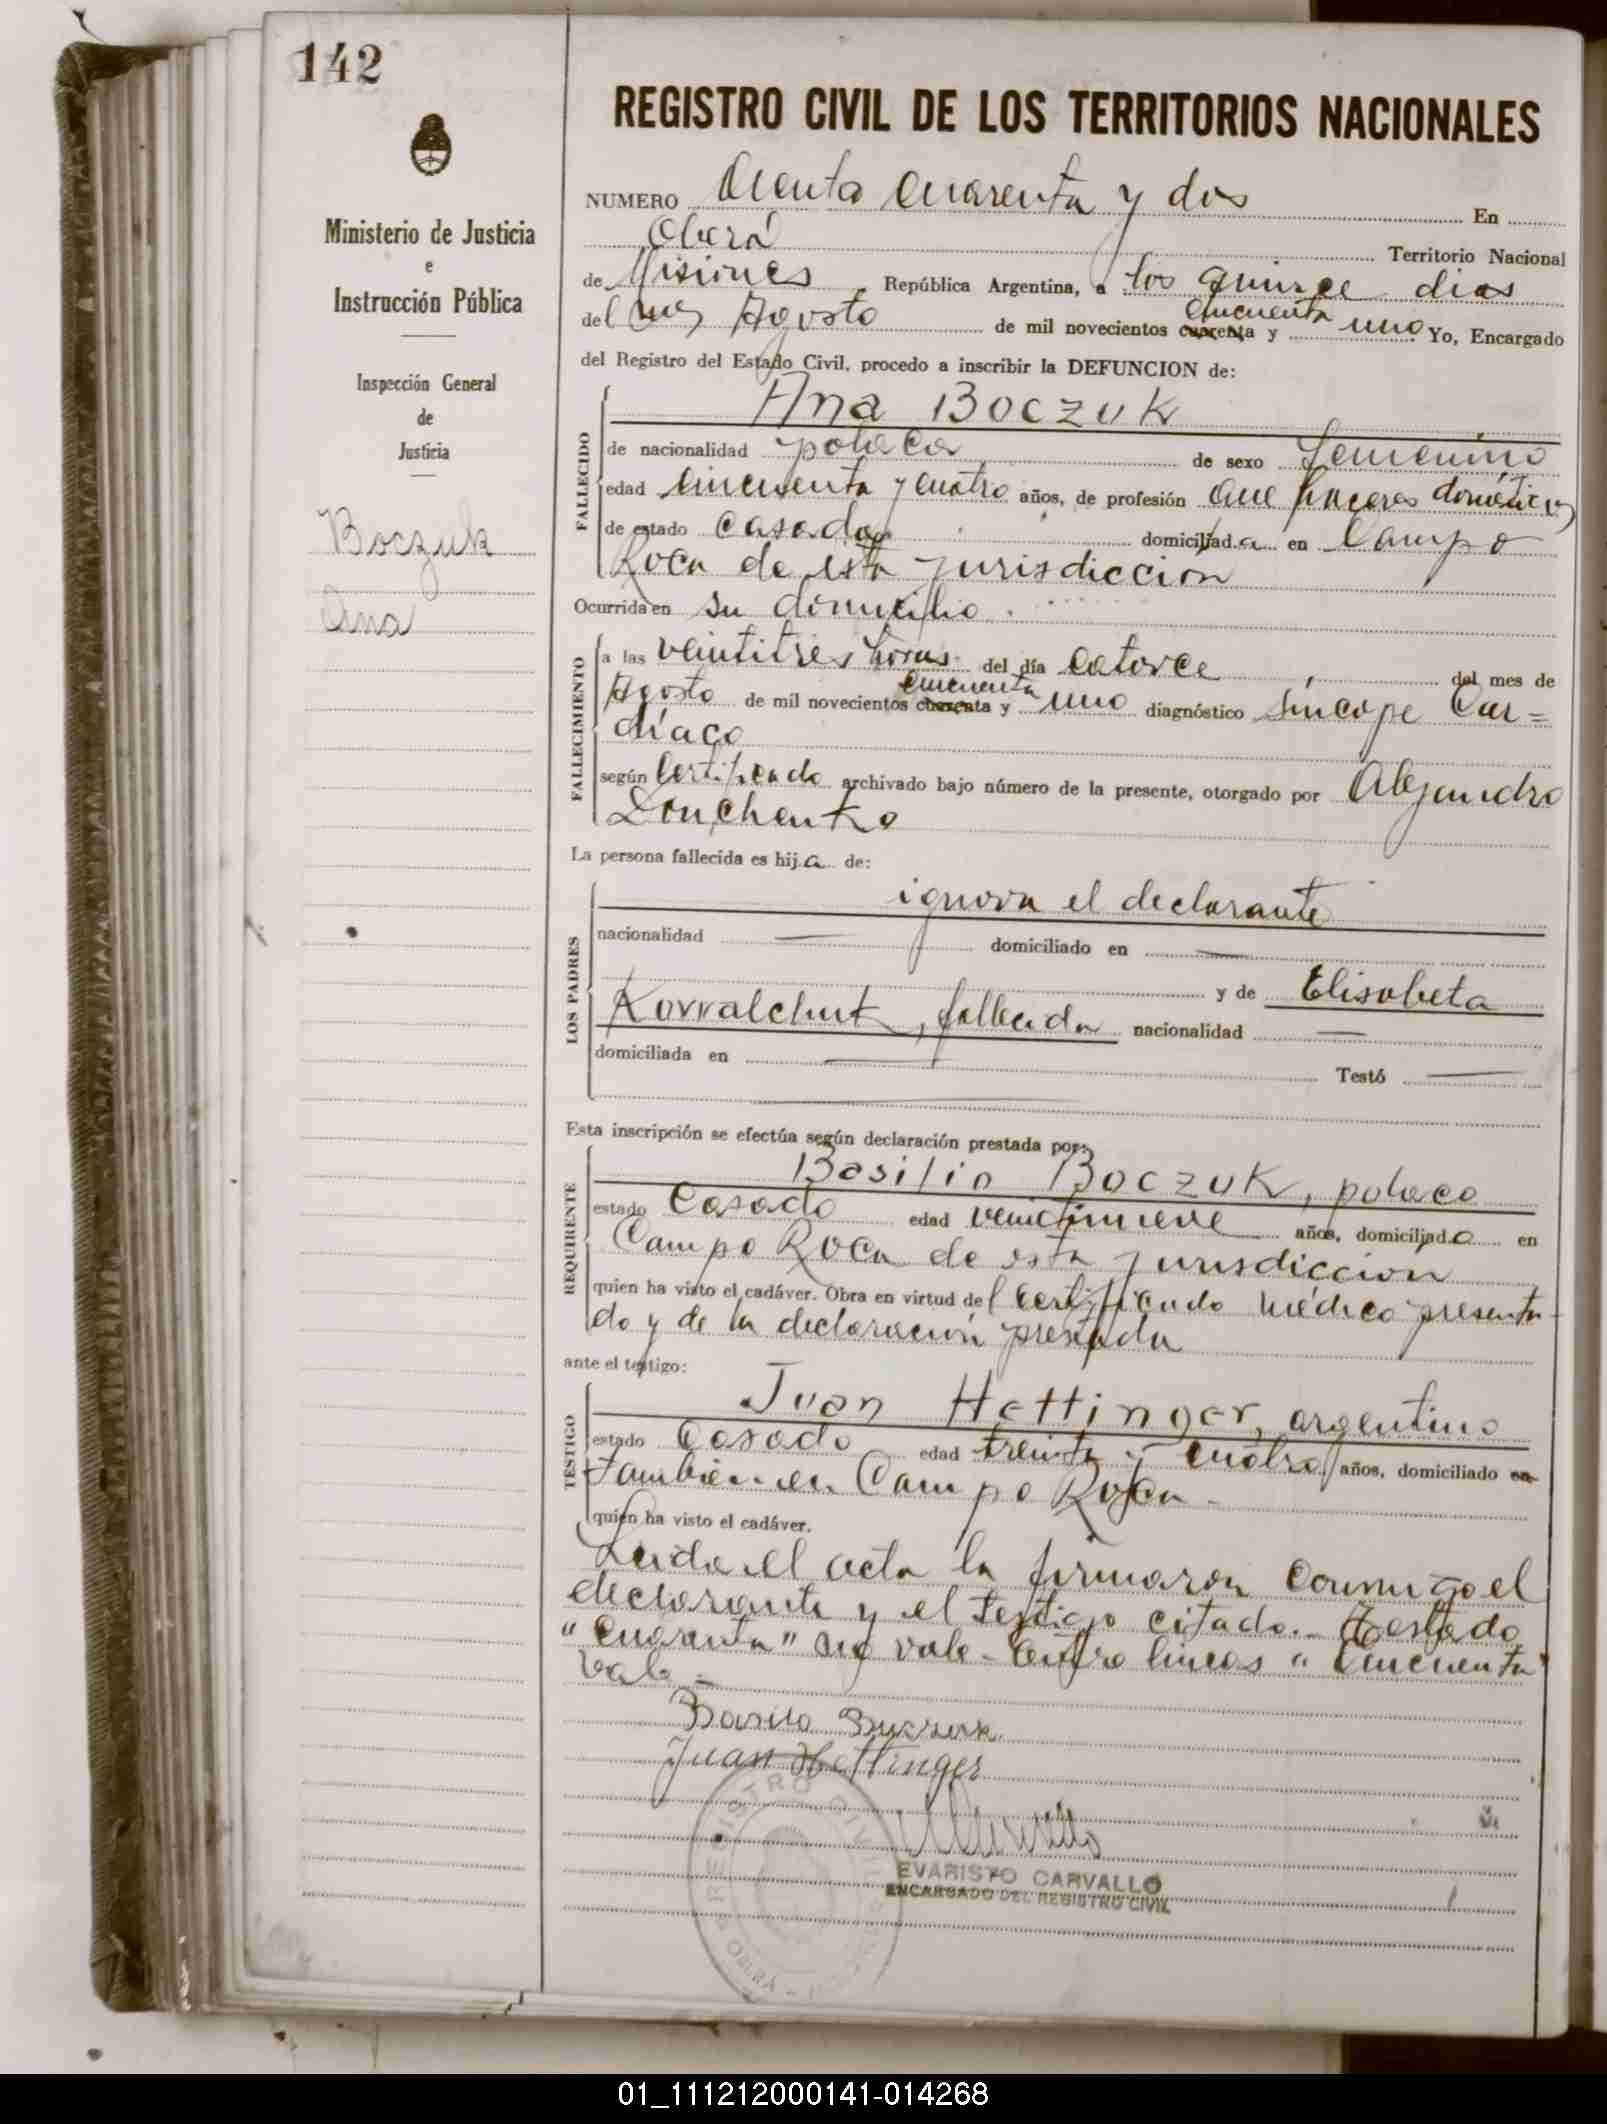 142
Ministerio de Justicia
e
Instrucción Pública
Inspección General
de
Justicia
Boczuk
Ana
REGISTRO CIVIL DE LOS TERRITORIOS NACIONALES
NUMERO Ciento Cuarenta y dos En
Oberá Territorio Nacional
de Misiones República Argentina, a los quince dias
del mes Agosto de mil novecientos cuarenta y cincuenta uno Yo, Encargado
del Registro del Estado Civil, procedo a inscribir la DEFUNCION de:
FALLECIDO
Ana Boczuk
de nacionalidad polaca de sexo femenino
edad cincuenta y cuatro años, de profesión que haceres domésticos
de estado casada domiciliada en Campo
Roca de esta jurisdiccion
Ocurrida en su domicilio
FALLECIMIENTO
a las veintitres horas del día catorce del mes de
Agosto de mil novecientos cuarenta y cincuenta uno diagnóstico Síncope Car=
díaco
según certificado archivado bajo número de la presente, otorgado por Alejandro
La persona fallecida es hija de:
LOS PADRES
ignora el declarante
nacionalidad — domiciliado en —
y de Elisabeta
Kowalchuk, fallecida nacionalidad —
domiciliada en — Testó —
Esta inscripción se efectúa según declaración prestada por:
REQUIRENTE
Basilio Boczuk, polaco
estado Casado edad veintinueve años, domiciliado en
Campo Roca de esta jurisdiccion
quien ha visto el cadáver. Obra en virtud del certificado médico presenta-
do y de la declaración prestada
ante el testigo:
TESTIGO
Juan Hettinger, argentino
estado Casado edad treinta y cuatro años, domiciliado en
también en Campo Roca-
quien ha visto el cadáver.
Leida el acta la firmaron conmigo el
declarante y el testigo citado.- Testado
"cuarenta" no vale- Entre lineas "cincuenta"
vale-
Juan Hettinger
REGISTRO CIVIL
EVARISTO CARVALLO
ENCARGADO DEL REGISTRO CIVIL
01_111212000141-014268